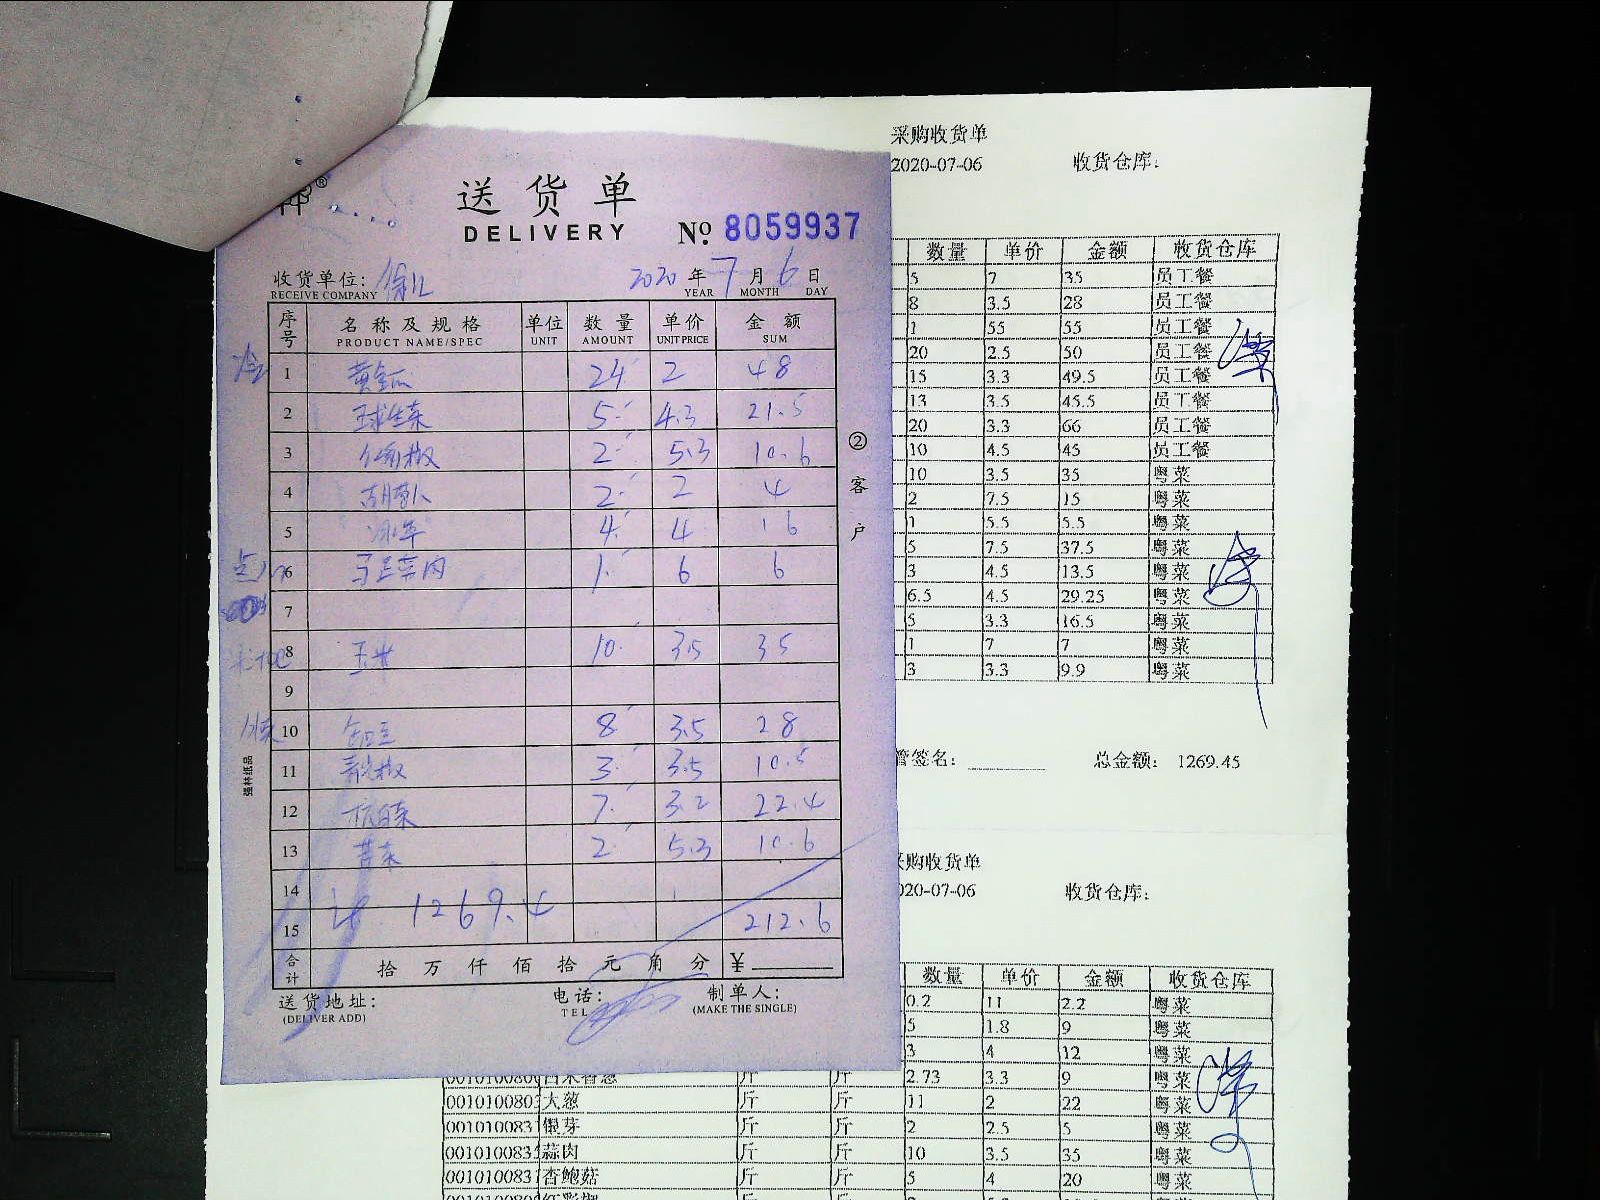 采购收货单
2020-07-06 收货仓库:
送货单
DELIVERY
№ 8059937
收货单位: 徐汇 2020 年 7 月 6 日
RECEIVE COMPANY YEAR MONTH DAY
序号 名称及规格 单位 数量 单价 金额
PRODUCT NAME/SPEC UNIT AMOUNT UNIT PRICE SUM
1 黄金瓜 24 2 48
2 球生菜 5 4.3 21.5
3 2 5.3 10.6
4 胡萝卜 2 2 4
5 冰草 4 4 16
6 马兰菜肉 1 6 6
7
8 玉米 10 3.5 35
9
10 8 3.5 28
11 青尖椒 3 3.5 10.5
12 杭白菜 7 3.2 22.4
13 苦菜 2 5.3 10.6
14
计 1269.4
15 212.6
合计 拾 万 仟 佰 拾 元 角 分 ¥
送货地址: 电话: 制单人:
(DELIVER ADD) TEL (MAKE THE SINGLE)
② 客户
强林纸品
数量 单价 金额 收货仓库
5 7 35 员工餐
8 3.5 28 员工餐
1 55 55 员工餐
20 2.5 50 员工餐
15 3.3 49.5 员工餐
13 3.5 45.5 员工餐
20 3.3 66 员工餐
10 4.5 45 员工餐
10 3.5 35 粤菜
2 7.5 15 粤菜
1 5.5 5.5 粤菜
5 7.5 37.5 粤菜
3 4.5 13.5 粤菜
6.5 4.5 29.25 粤菜
5 3.3 16.5 粤菜
1 7 7 粤菜
3 3.3 9.9 粤菜
管签名: 总金额: 1269.45
采购收货单
2020-07-06 收货仓库:
数量 单价 金额 收货仓库
0.2 11 2.2 粤菜
5 1.8 9 粤菜
3 4 12 粤菜
斤 斤 2.73 3.3 9 粤菜
001010080 大葱 斤 斤 11 2 22 粤菜
001010083 银芽 斤 斤 2 2.5 5 粤菜
001010083 蒜肉 斤 斤 10 3.5 35 粤菜
001010083 杏鲍菇 斤 斤 5 4 20 粤菜